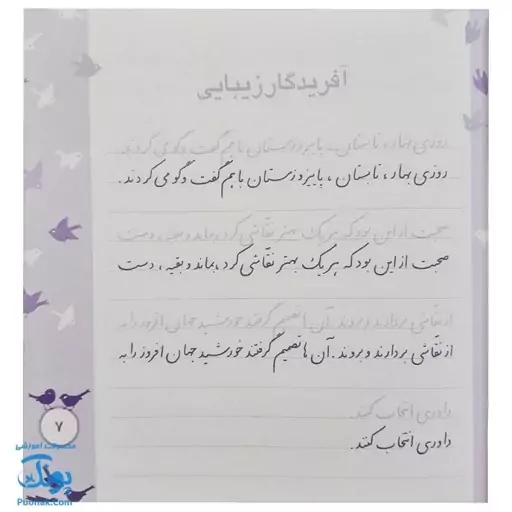 آفریدگار زیبایی
روزی بهار، تابستان، پاییز و زمستان با هم گفت و گو می کردند.
روزی بهار، تابستان، پاییز و زمستان با هم گفت و گو می کردند.
صحبت از این بود که هر یک بهتر نقاشی کرد، بماند و بقیه، دست
صحبت از این بود که هر یک بهتر نقاشی کرد، بماند و بقیه، دست
از نقاشی بردارند و بروند. آن ها تصمیم گرفتند خورشید جهان افروز را به
از نقاشی بردارند و بروند. آن ها تصمیم گرفتند خورشید جهان افروز را به
داوری انتخاب کنند.
داوری انتخاب کنند.
۷
محصولات آموزشی
پونک
Poonak.Com